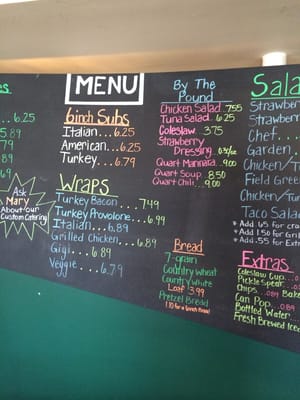 es
6.25
5.89
Ask
Mary
About our
Custom Catering
MENU
6inch Subs
Italian...6.25
American...6.25
Turkey...6.79
Wraps
Turkey Bacon...7.49
Turkey Provolone...6.99
Italian...6.89
Grilled Chicken....6.89
Gigi...6.89
Veggie....6.79
By The
Pound
Chicken Salad 7.55
Tuna Salad 6.25
Coleslaw 3.75
Strawberry
Dressing
Quart Marinara 9.00
Quart Soup 8.50
Quart Chili 9.00
Bread
7-grain
Country wheat
Country white
Loaf 3.99
Pretzel Bread
Sala
Strawb
Strawber
Chef...
Garden..
Chicken/T
Field Green
Chicken/Tu
Taco Salad
* Add .65 for cra
* Add 1.50 for Gril
* Add .55 for Ext
Extras
Coleslaw Cup...
Pickle Spear...
Chips...0.89 Bake
Can Pop...0.89
Bottled Water...
Fresh Brewed Ice